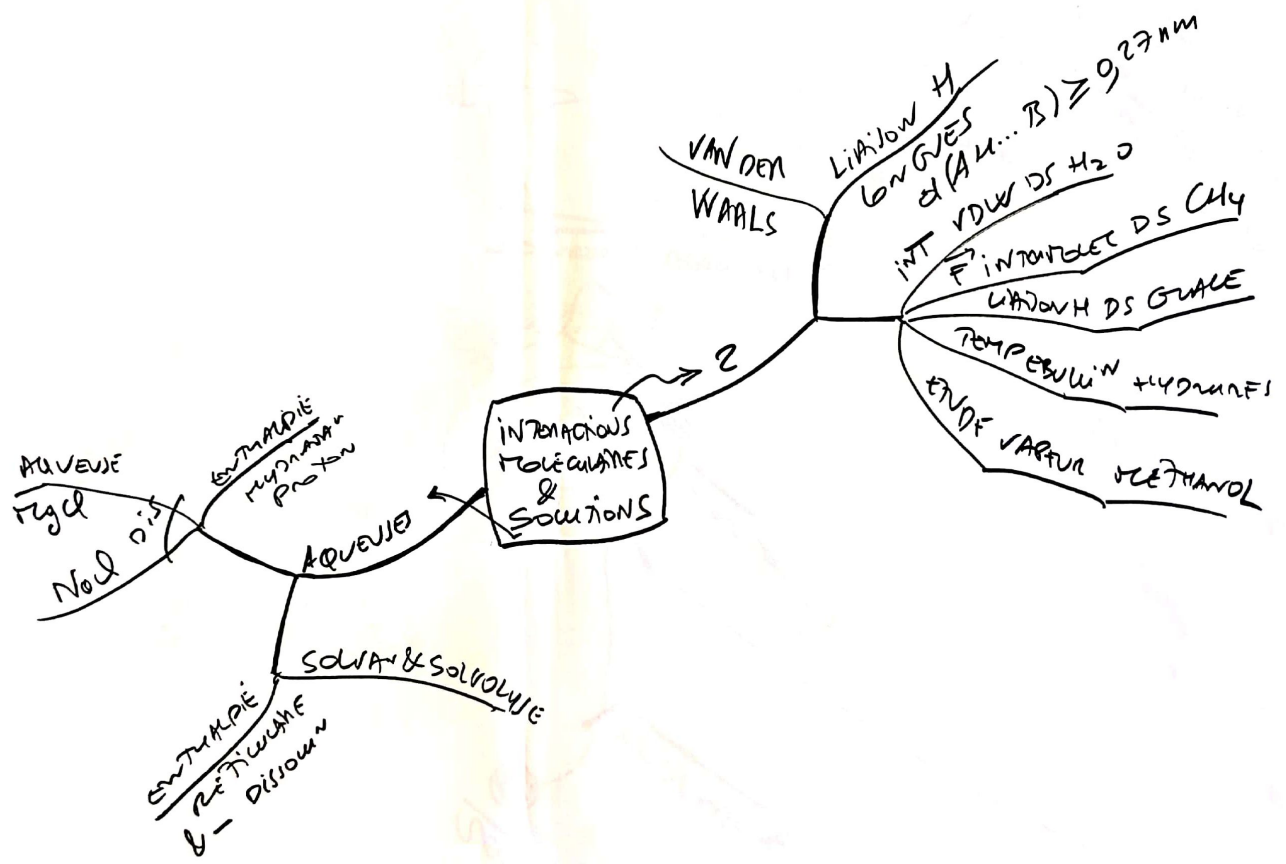 INTERACTIONS
MOLÉCULAIRES
&
SOLUTIONS
2
VAN DER
WAALS
LIAISON H
LONGUES
d(AH... B) ≥ 0,27nm
INT VDW DS H2O
F INTERMOLEC DS CH4
LIAISON H DS GLACE
TEMP EBULL°N HYDRURES
ETUDE VAPEUR METHANOL
AQUEUSES
ENTHALPIE
HYDRATAN
PROTON
AQUEUSE
MgCl
NaCl DIS
SOLVAN & SOLVOLYSE
ENTHALPIE
RÉTICULAIRE
& — DISSOUN